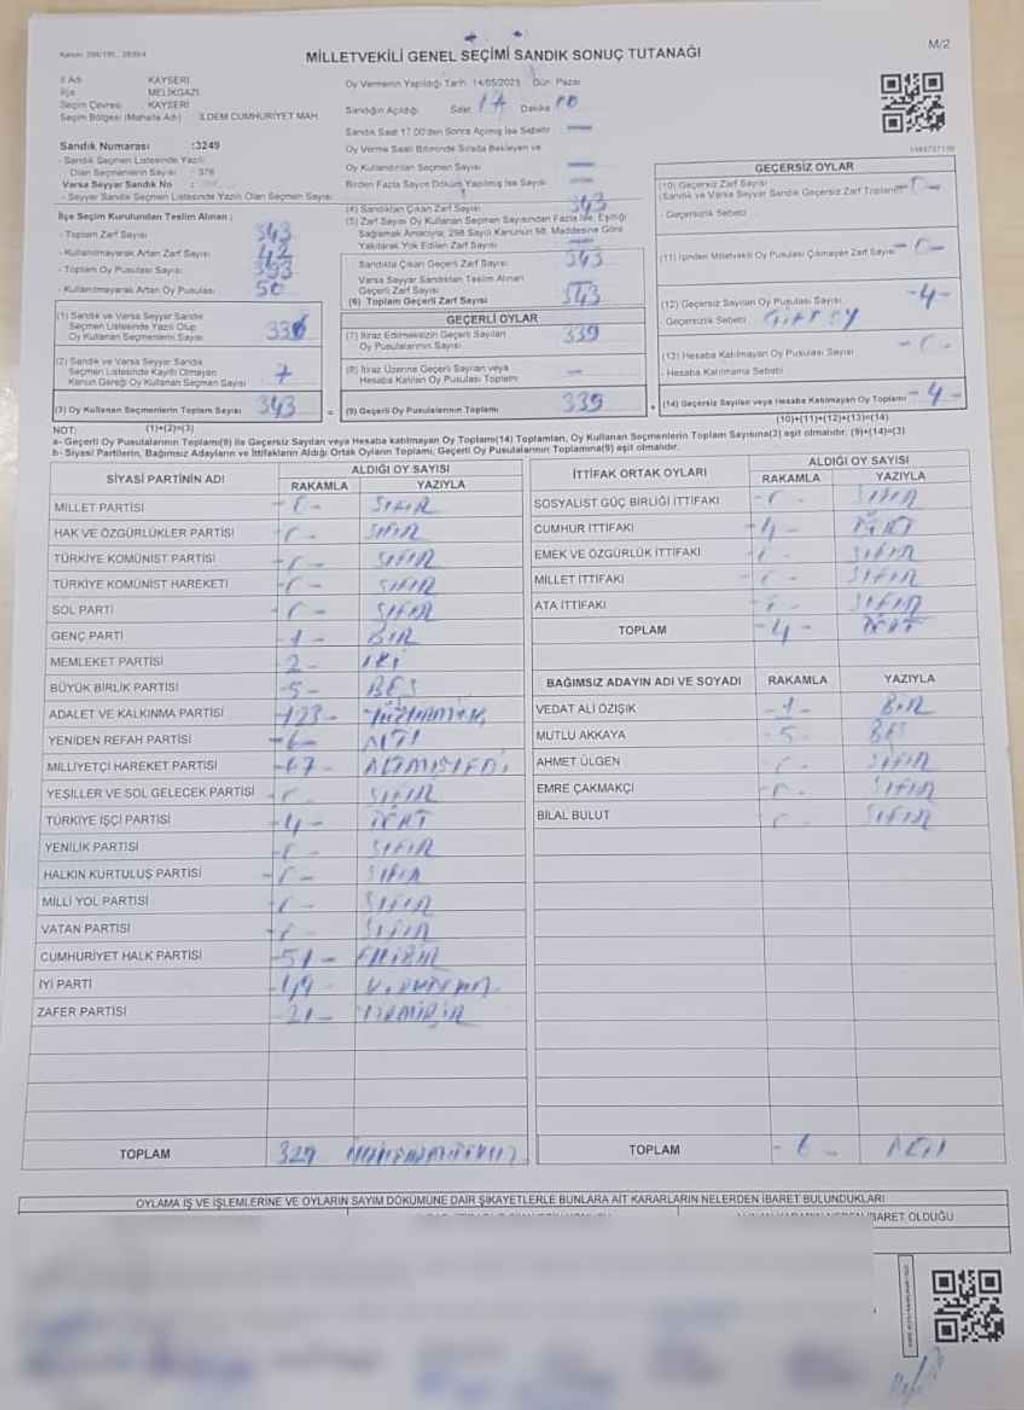 M/2
MİLLETVEKİLİ GENEL SEÇİMİ SANDIK SONUÇ TUTANAĞI
İl Adı KAYSERİ
İlçe MELİKGAZİ
Seçim Çevresi KAYSERİ
Seçim Bölgesi (Mahalle Adı) İLDEM CUMHURİYET MAH.
Sandık Numarası :3249
- Sandık Seçmen Listesinde Yazılı
Olan Seçmenlerin Sayısı : 376
Varsa Seyyar Sandık No :
- Seyyar Sandık Seçmen Listesinde Yazılı Olan Seçmen Sayısı
Oy Vermenin Yapıldığı Tarih 14/05/2023 Gün: Pazar
Sandığın Açıldığı Saat 17 Dakika 10
Sandık Saat 17.00'den Sonra Açılmış İse Sebebi —
Oy Verme Saati Bitiminde Sırada Bekleyen ve
Oy Kullandırılan Seçmen Sayısı —
Birden Fazla Sayım Döküm Yapılmış İse Sayısı —
İlçe Seçim Kurulundan Teslim Alınan ;
- Toplam Zarf Sayısı 343
- Kullanılmayarak Artan Zarf Sayısı 42
- Toplam Oy Pusulası Sayısı 393
- Kullanılmayarak Artan Oy Pusulası 50
(1) Sandık ve Varsa Seyyar Sandık
Seçmen Listesinde Yazılı Olup
Oy Kullanan Seçmenlerin Sayısı 336
(2) Sandık ve Varsa Seyyar Sandık
Seçmen Listesinde Kayıtlı Olmayan
Kanun Gereği Oy Kullanan Seçmen Sayısı 7
(3) Oy Kullanan Seçmenlerin Toplam Sayısı 343
(1)+(2)=(3)
(4) Sandıktan Çıkan Zarf Sayısı 343
(5) Zarf Sayısı Oy Kullanan Seçmen Sayısından Fazla İse, Eşitliği
Sağlamak Amacıyla, 298 Sayılı Kanunun 98. Maddesine Göre
Yakılarak Yok Edilen Zarf Sayısı —
Sandıkta Çıkan Geçerli Zarf Sayısı 343
Varsa Seyyar Sandıktan Teslim Alınan
Geçerli Zarf Sayısı
(6) Toplam Geçerli Zarf Sayısı 343
GEÇERLİ OYLAR
(7) İtiraz Edilmeksizin Geçerli Sayılan
Oy Pusulalarının Sayısı 339
(8) İtiraz Üzerine Geçerli Sayılan veya
Hesaba Katılan Oy Pusulası Toplamı —
= (9) Geçerli Oy Pusulalarının Toplamı 339
GEÇERSİZ OYLAR
(10) Geçersiz Zarf Sayısı
(Sandık ve Varsa Seyyar Sandık Geçersiz Zarf Toplamı) -0-
- Geçersizlik Sebebi
(11) İçinden Milletvekili Oy Pusulası Çıkmayan Zarf Sayısı -0-
(12) Geçersiz Sayılan Oy Pusulası Sayısı -4-
- Geçersizlik Sebebi
(13) Hesaba Katılmayan Oy Pusulası Sayısı -0-
- Hesaba Katılmama Sebebi
+ (14) Geçersiz Sayılan veya Hesaba Katılmayan Oy Toplamı -4-
(10)+(11)+(12)+(13)=(14)
NOT:
a- Geçerli Oy Pusulalarının Toplamı(9) ile Geçersiz Sayılan veya Hesaba katılmayan Oy Toplamı(14) Toplamları, Oy Kullanan Seçmenlerin Toplam Sayısına(3) eşit olmalıdır. (9)+(14)=(3)
b- Siyasi Partilerin, Bağımsız Adayların ve İttifakların Aldığı Ortak Oyların Toplamı, Geçerli Oy Pusulalarının Toplamına(9) eşit olmalıdır.
SİYASİ PARTİNİN ADI ALDIĞI OY SAYISI
RAKAMLA YAZIYLA
MİLLET PARTİSİ -0- SIFIR
HAK VE ÖZGÜRLÜKLER PARTİSİ -0- SIFIR
TÜRKİYE KOMÜNİST PARTİSİ -0- SIFIR
TÜRKİYE KOMÜNİST HAREKETİ -0- SIFIR
SOL PARTİ -0- SIFIR
GENÇ PARTİ -1- BİR
MEMLEKET PARTİSİ 2- İKİ
BÜYÜK BİRLİK PARTİSİ -5- BEŞ
ADALET VE KALKINMA PARTİSİ -123-
YENİDEN REFAH PARTİSİ -6- ALTI
MİLLİYETÇİ HAREKET PARTİSİ -67- ALTMIŞYEDİ
YEŞİLLER VE SOL GELECEK PARTİSİ -0- SIFIR
TÜRKİYE İŞÇİ PARTİSİ -4- DÖRT
YENİLİK PARTİSİ -0- SIFIR
HALKIN KURTULUŞ PARTİSİ -0- SIFIR
MİLLİ YOL PARTİSİ -0- SIFIR
VATAN PARTİSİ -0- SIFIR
CUMHURİYET HALK PARTİSİ -51- ELLİBİR
İYİ PARTİ -49-
ZAFER PARTİSİ -21- YİRMİBİR
TOPLAM 329
İTTİFAK ORTAK OYLARI ALDIĞI OY SAYISI
RAKAMLA YAZIYLA
SOSYALİST GÜÇ BİRLİĞİ İTTİFAKI -0- SIFIR
CUMHUR İTTİFAKI -4- DÖRT
EMEK VE ÖZGÜRLÜK İTTİFAKI -0- SIFIR
MİLLET İTTİFAKI -0- SIFIR
ATA İTTİFAKI -0- SIFIR
TOPLAM -4- DÖRT
BAĞIMSIZ ADAYIN ADI VE SOYADI RAKAMLA YAZIYLA
VEDAT ALİ ÖZIŞIK -1- BİR
MUTLU AKKAYA -5- BEŞ
AHMET ÜLGEN -0- SIFIR
EMRE ÇAKMAKÇI -0- SIFIR
BİLAL BULUT -0- SIFIR
TOPLAM -6- ALTI
OYLAMA İŞ VE İŞLEMLERİNE VE OYLARIN SAYIM DÖKÜMÜNE DAİR ŞİKAYETLERLE BUNLARA AİT KARARLARIN NELERDEN İBARET BULUNDUKLARI
İBARET OLDUĞU